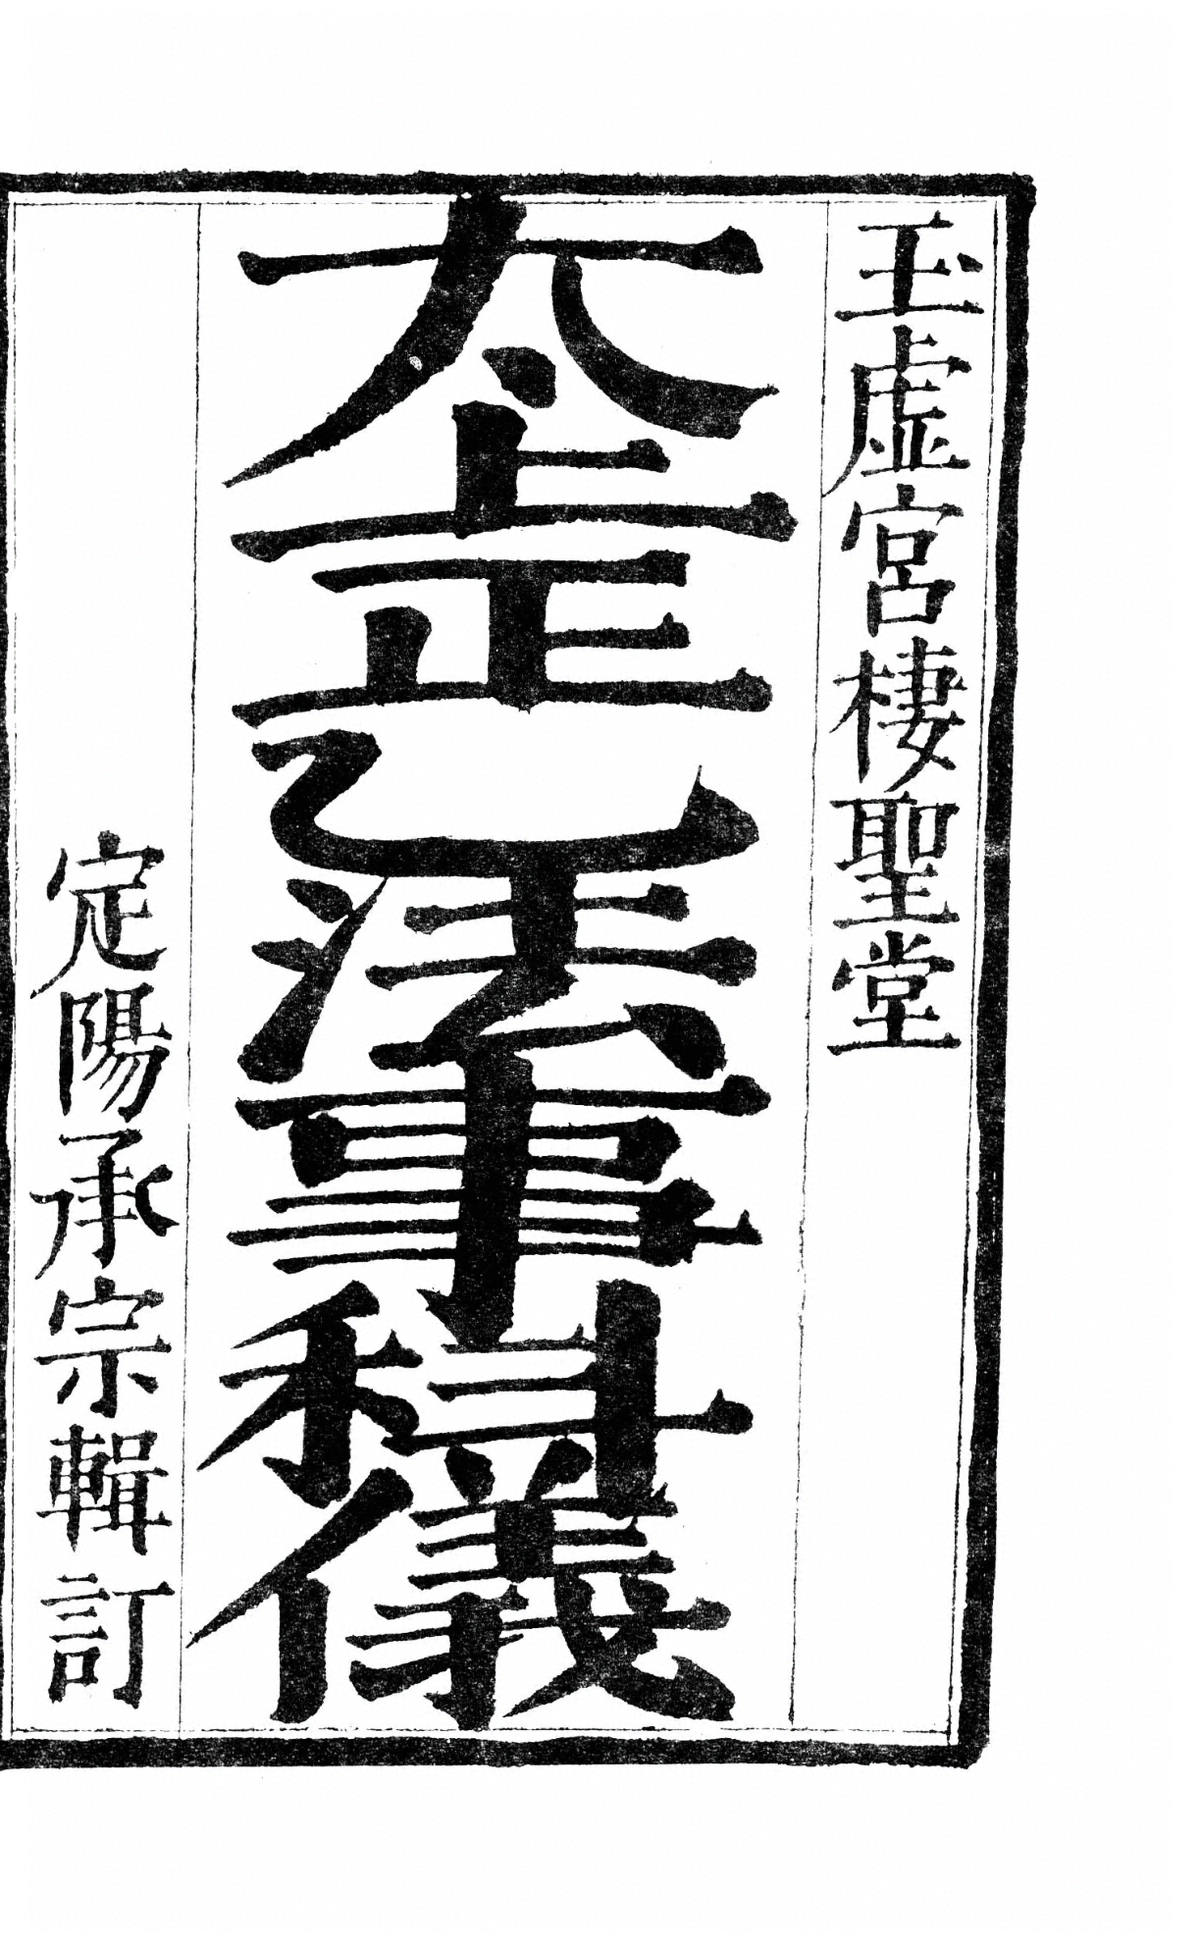 玉虛宮棲聖堂
太上正乙法事科儀
定陽承宗輯訂